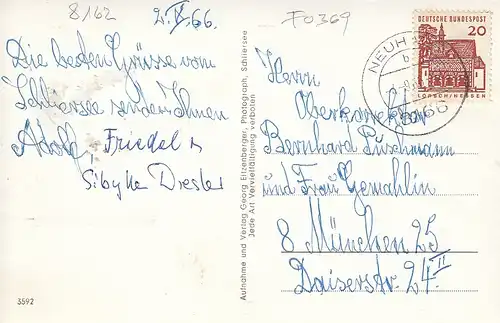 8/62
2. V. 66.
F0369
Die besten Grüsse vom
Schliersee senden Ihnen
Adolf, Friedel u
Sibylle Dresler
3592
Aufnahme und Verlag Georg Eitzenberger, Photograph, Schliersee
Jede Art Vervielfältigung verboten
DEUTSCHE BUNDESPOST
20
LORSCH/HESSEN
NEUH
b
66
Herrn
Bernhard Puschmann
und Frau Gemahlin
8 München 25
Daiserstr. 24 II